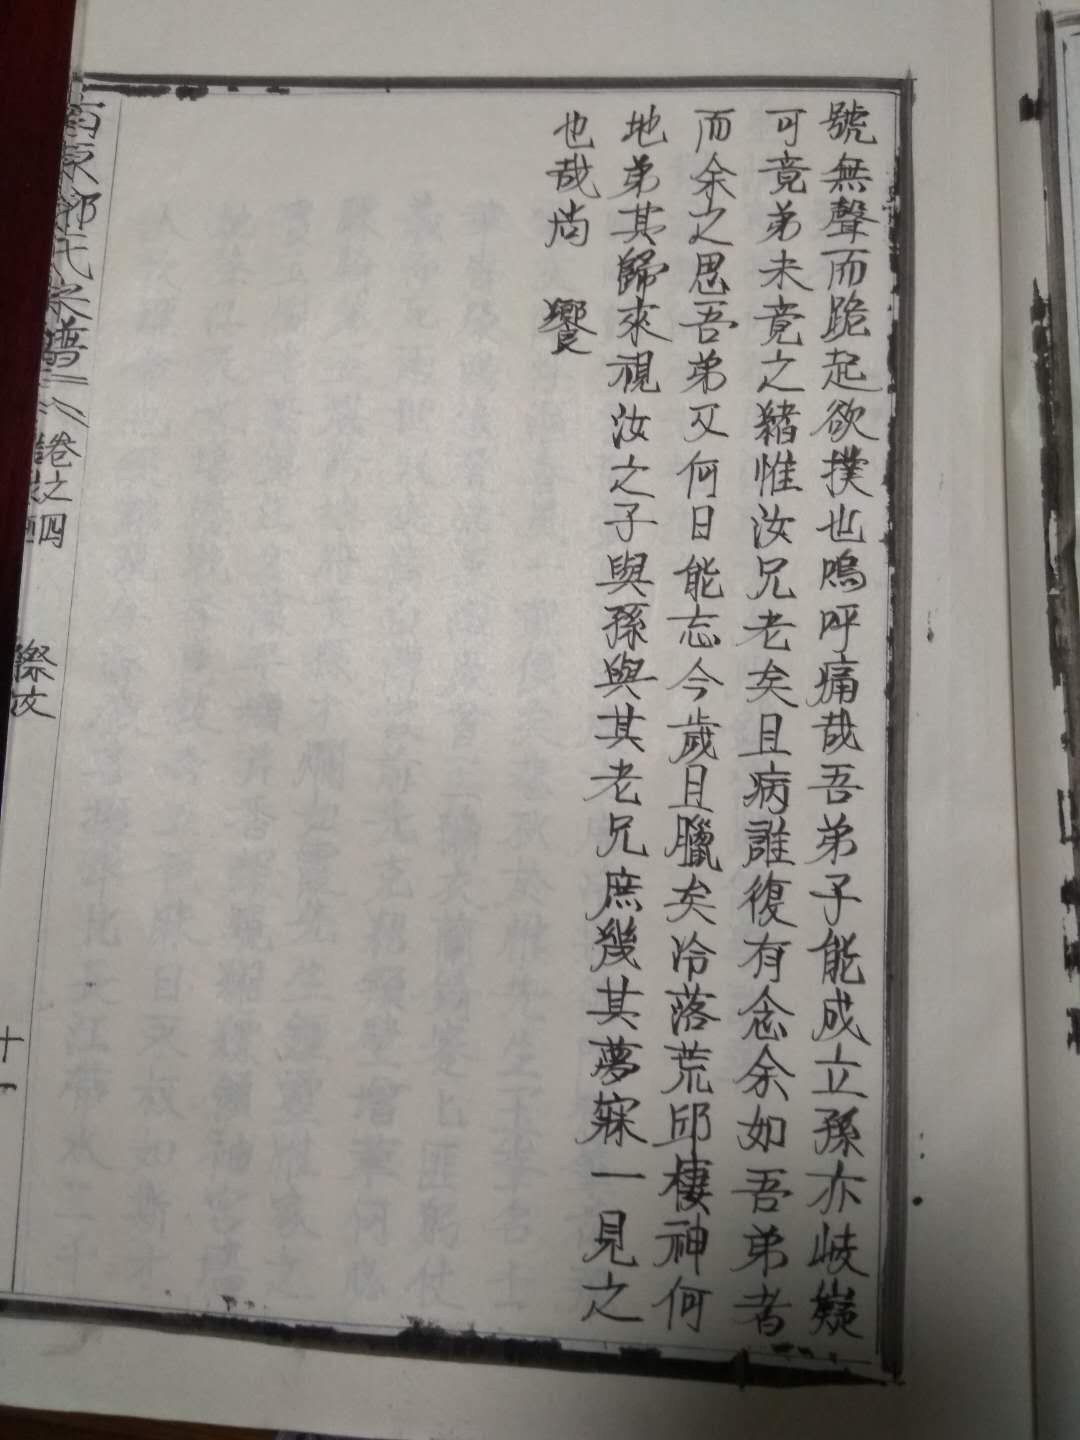 號無聲而跪起欲撲也嗚呼痛哉吾弟子能成立孫亦岐嶷
可竟弟未竟之緒惟汝兄老矣且病誰復有念余如吾弟者
而余之思吾弟又何日能忘今歲且臘矣冷落荒邱棲神何
地弟其歸來視汝之子與孫與其老兄庶幾其夢寐一見之
也哉尚　饗
鄧氏宗譜　卷之四　祭文　十一